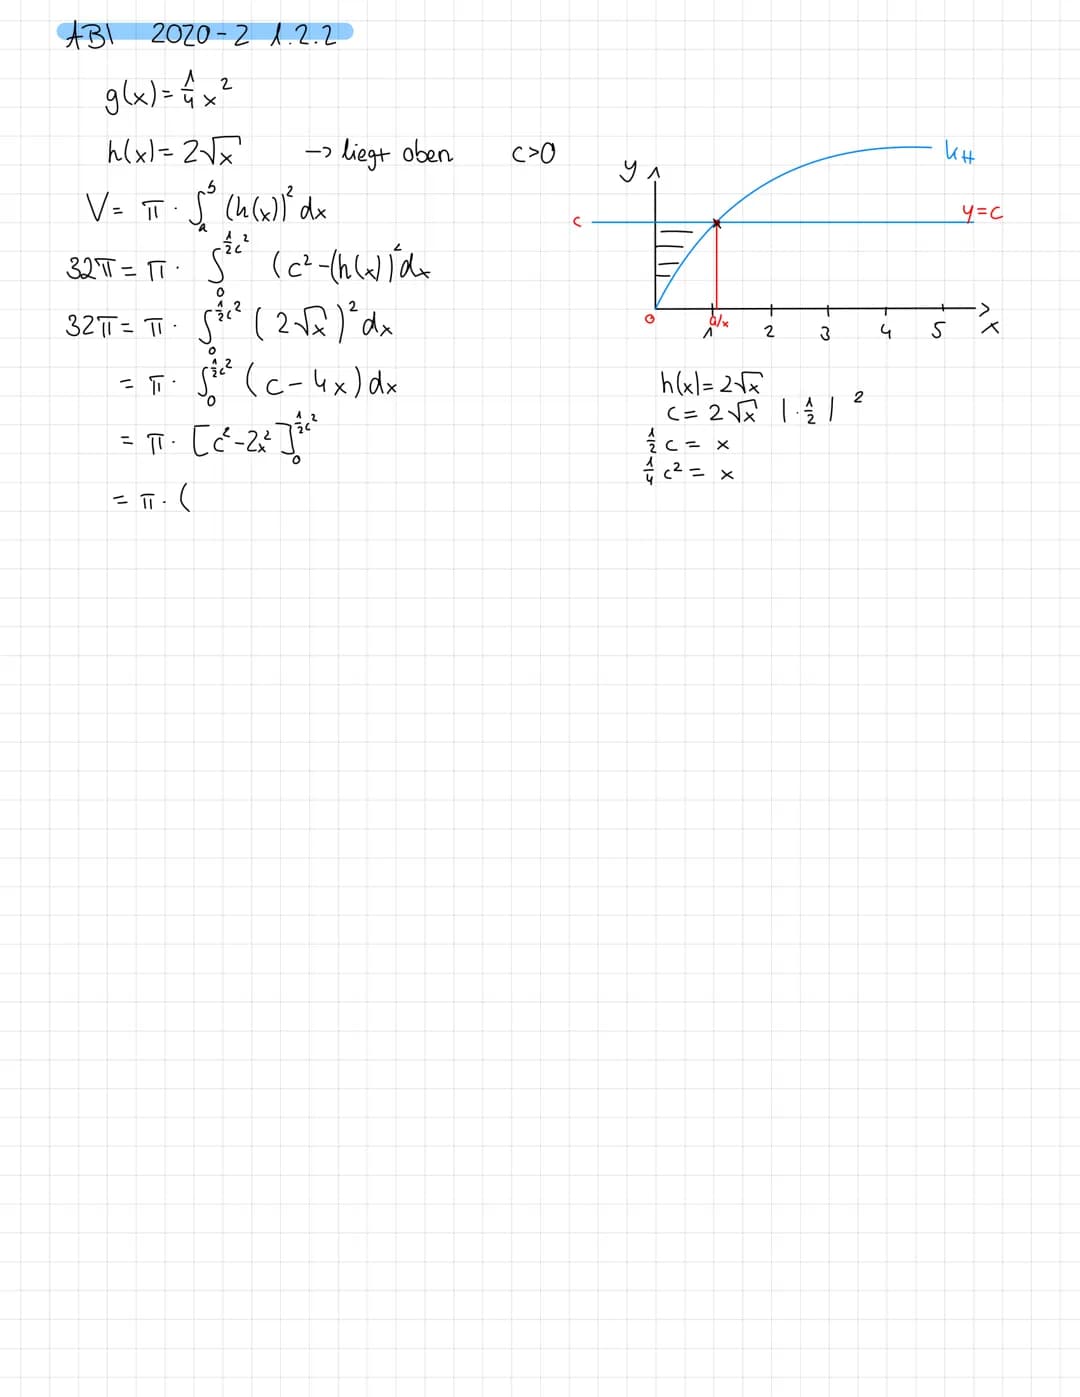 ABI 2020-2 1.2.2
g(x)= 1/4 x²
h(x)= 2√x -> liegt oben c>0
V= π · ∫_a^b (h(x))² dx
32π = π · ∫_0^{1/2c²} (c²-(h(x))² dx
32π = π · ∫_0^{1/2c²} (2√x)² dx
= π · ∫_0^{1/2c²} (c-4x) dx
= π · [c²-2x²]_0^{1/2c²}
= π · (
y
KH
c
y=c
0 1 a/x 2 3 4 5 x
h(x)= 2√x
c= 2√x | ·1/2 | ²
1/2 c = x
1/4 c² = x